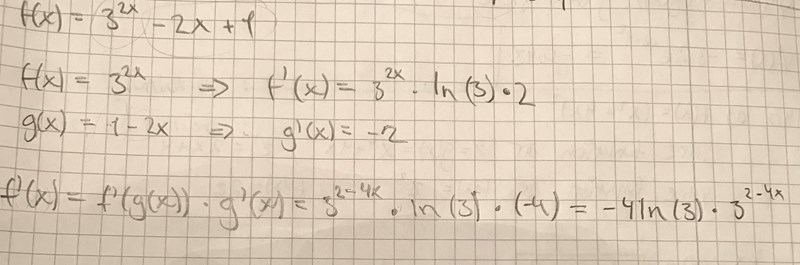 f(x) = 3^{2x} - 2x + 1
f(x) = 3^{2x} ⇒ f'(x) = 3^{2x} · ln(3) · 2
g(x) = 1 - 2x ⇒ g'(x) = -2
f'(x) = f'(g(x)) · g'(x) = 3^{2-4x} · ln(3) · (-4) = -4 ln(3) · 3^{2-4x}